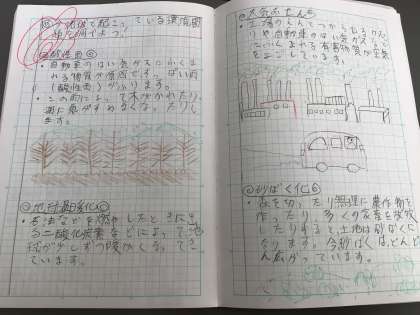 今地球で起こっている環境問
酸性雨
・自動車のはい気ガスにふくま
れる物質が原因で、すっぱい雨
(酸性雨)がふります。
・この雨によって木がかれたり、
湖に魚がすめなくなったりし
ます。
地球温暖化
石油などを燃やしたときに
る二酸化炭素などによって地
球が少しずつ暖かくなってき
ています。
大気おせん
・工場のえんとつから出るけむ
りや自動車のはい気ガスなど
にふくまれる有害物質が空気
をよごします。
さばく化
・森を切ったり、無理に農作物を
作ったり、多くの家畜を放牧
したりすると、土地は砂ばくに
なります。今砂ばくは、どんど
ん広がっています。